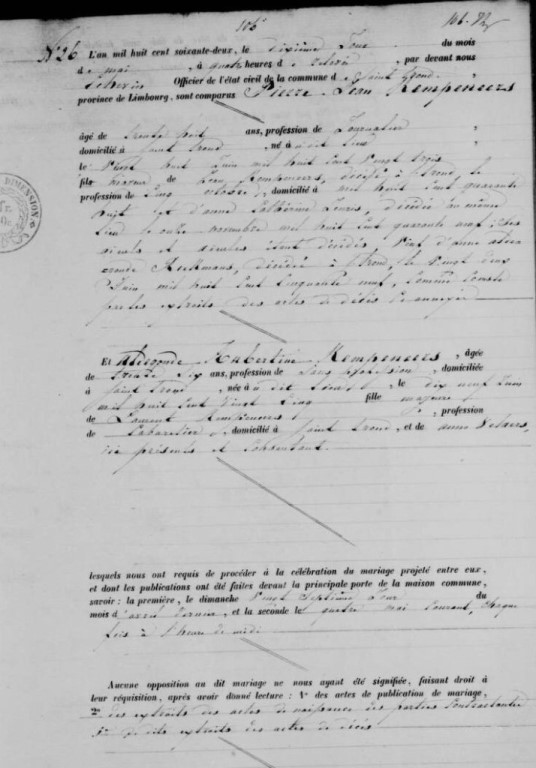 106
106. 92
N° 26
L'an mil huit cent soixante-deux, le dixième Jour du mois
d mai à quatre heures d relevé par devant nous
échevin Officier de l'état civil de la commune d Saint Trond
province de Limbourg, sont comparus Pierre Jean Kempeneers
âgé de trente huit ans, profession de
domicilié à Saint Trond né à dit lieu
le Vingt huit Juin mil huit Cent Vingt trois
fils majeur de Jean Kempeneers, décédé à St Trond, le
profession de Cinq octobre, domicilié à mil huit Cent quarante
Sept et d'anne Catherine, décédée au même
lieu le onze novembre mil huit Cent quarante neuf; Ses
aieuls et aieules étant décédés,
Kullmans, décédée à St Trond, le Vingt deux
Juin mil huit Cent Cinquante neuf, Comme Conste
par les extraits des actes de décès Ci annexés
Et Aldegonde Hubertine Kempeneers, âgée
de trente Six ans, profession de Sans profession, domiciliée
à Saint Trond, née à dit le dix neuf Juin
mil huit Cent Vingt Cinq fille majeure
de Laurent Kempeneers, profession
de Cabaretier, domicilié à Saint Trond, et de anne
ici présents et Consentant.
lesquels nous ont requis de procéder à la célébration du mariage projeté entre eux,
et dont les publications ont été faites devant la principale porte de la maison commune,
savoir: la première, le dimanche Vingt Septième Jour du
mois d'avril dernier, et la seconde le quatre mai Courant, chaque
fois à l'heure de midi
Aucune opposition au dit mariage ne nous ayant été signifiée, faisant droit à
leur réquisition, après avoir donné lecture: 1° des actes de publication de mariage,
2° des extraits des actes de naissance des parties Contractantes
3° de dits extraits des actes de décès